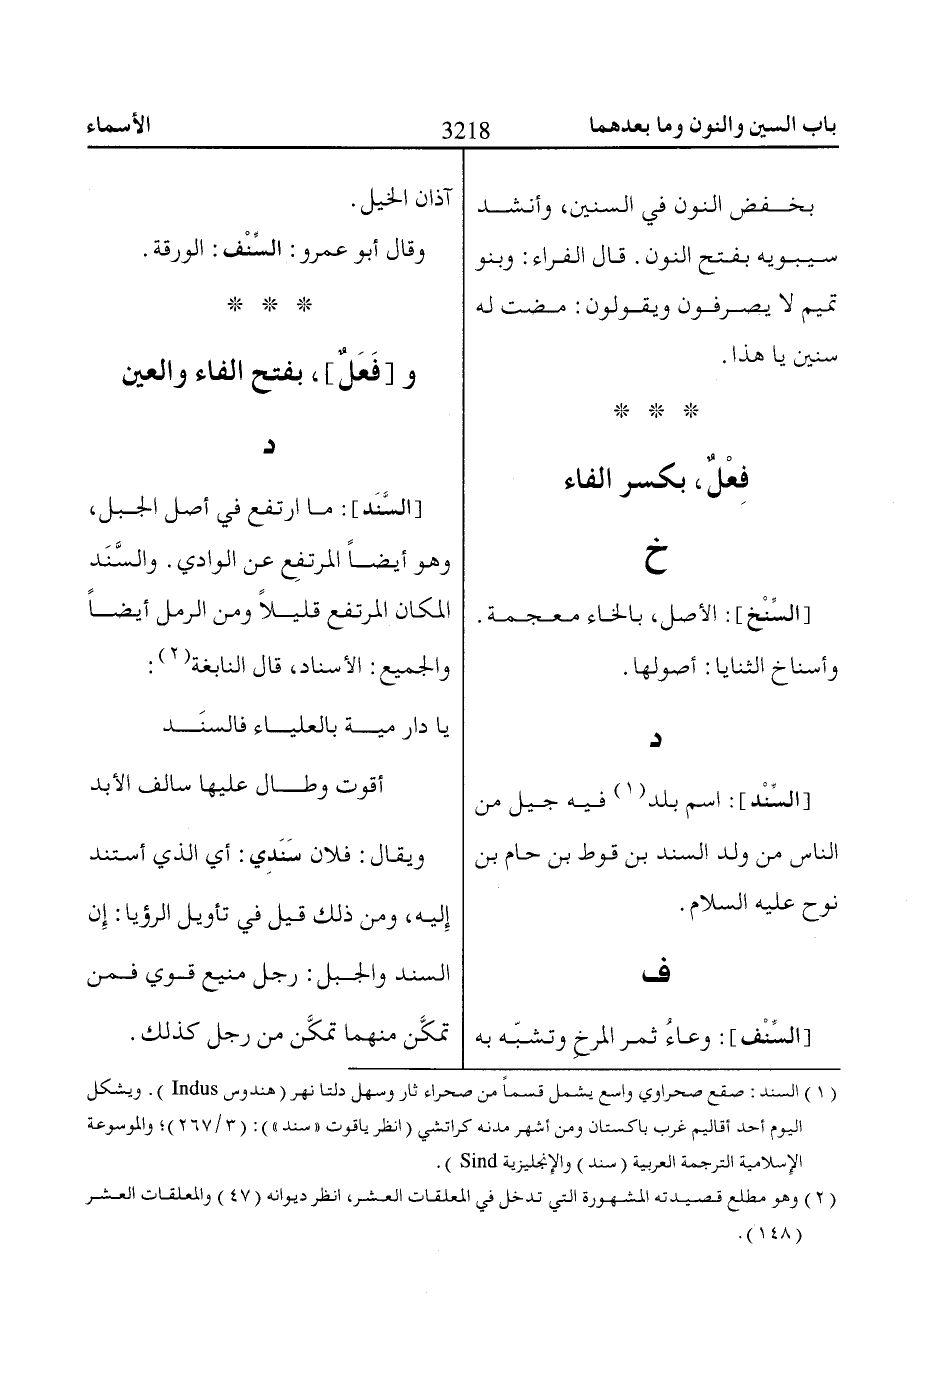 باب السين والنون وما بعدهما 3218 الأسماء
بخفض النون في السنين، وأنشد
سيبويه بفتح النون. قال الفراء: وبنو
تميم لا يصرفون ويقولون: مضت له
سنين يا هذا.
* * *
فِعْلٌ، بكسر الفاء
خ
[السِّنْخ]: الأصل، بالخاء معجمة.
وأسناخ الثنايا: أصولها.
د
[السِّنْد]: اسم بلد(١) فيه جيل من
الناس من ولد السند بن قوط بن حام بن
نوح عليه السلام.
ف
[السِّنْف]: وعاءُ ثمر المرخِ وتشبّه به
آذان الخيل.
وقال أبو عمرو: السِّنْف: الورقة.
* * *
و [فَعَلٌ]، بفتح الفاء والعين
د
[السَّنَد]: ما ارتفع في أصل الجبل،
وهو أيضاً المرتفع عن الوادي. والسَّنَد
المكان المرتفع قليلاً ومن الرمل أيضاً
والجميع: الأسناد، قال النابغة(٢):
يا دار مية بالعلياء فالسنَد
أقوت وطال عليها سالف الأبد
ويقال: فلان سَنَدِي: أي الذي أستند
إليه، ومن ذلك قيل في تأويل الرؤيا: إِن
السند والجبل: رجل منيع قوي فمن
تمكَّن منهما تمكَّن من رجل كذلك.
(١) السند: صقع صحراوي واسع يشمل قسماً من صحراء ثار وسهل دلتا نهر (هندوس Indus). ويشكل
اليوم أحد أقاليم غرب باكستان ومن أشهر مدنه كراتشي (انظر ياقوت «سند»): (٢٦٧/٣)؛ والموسوعة
الإسلامية الترجمة العربية (سند) والإنجليزية Sind).
(٢) وهو مطلع قصيدته المشهورة التي تدخل في المعلقات العشر، انظر ديوانه (٤٧) والمعلقات العشر
(١٤٨).